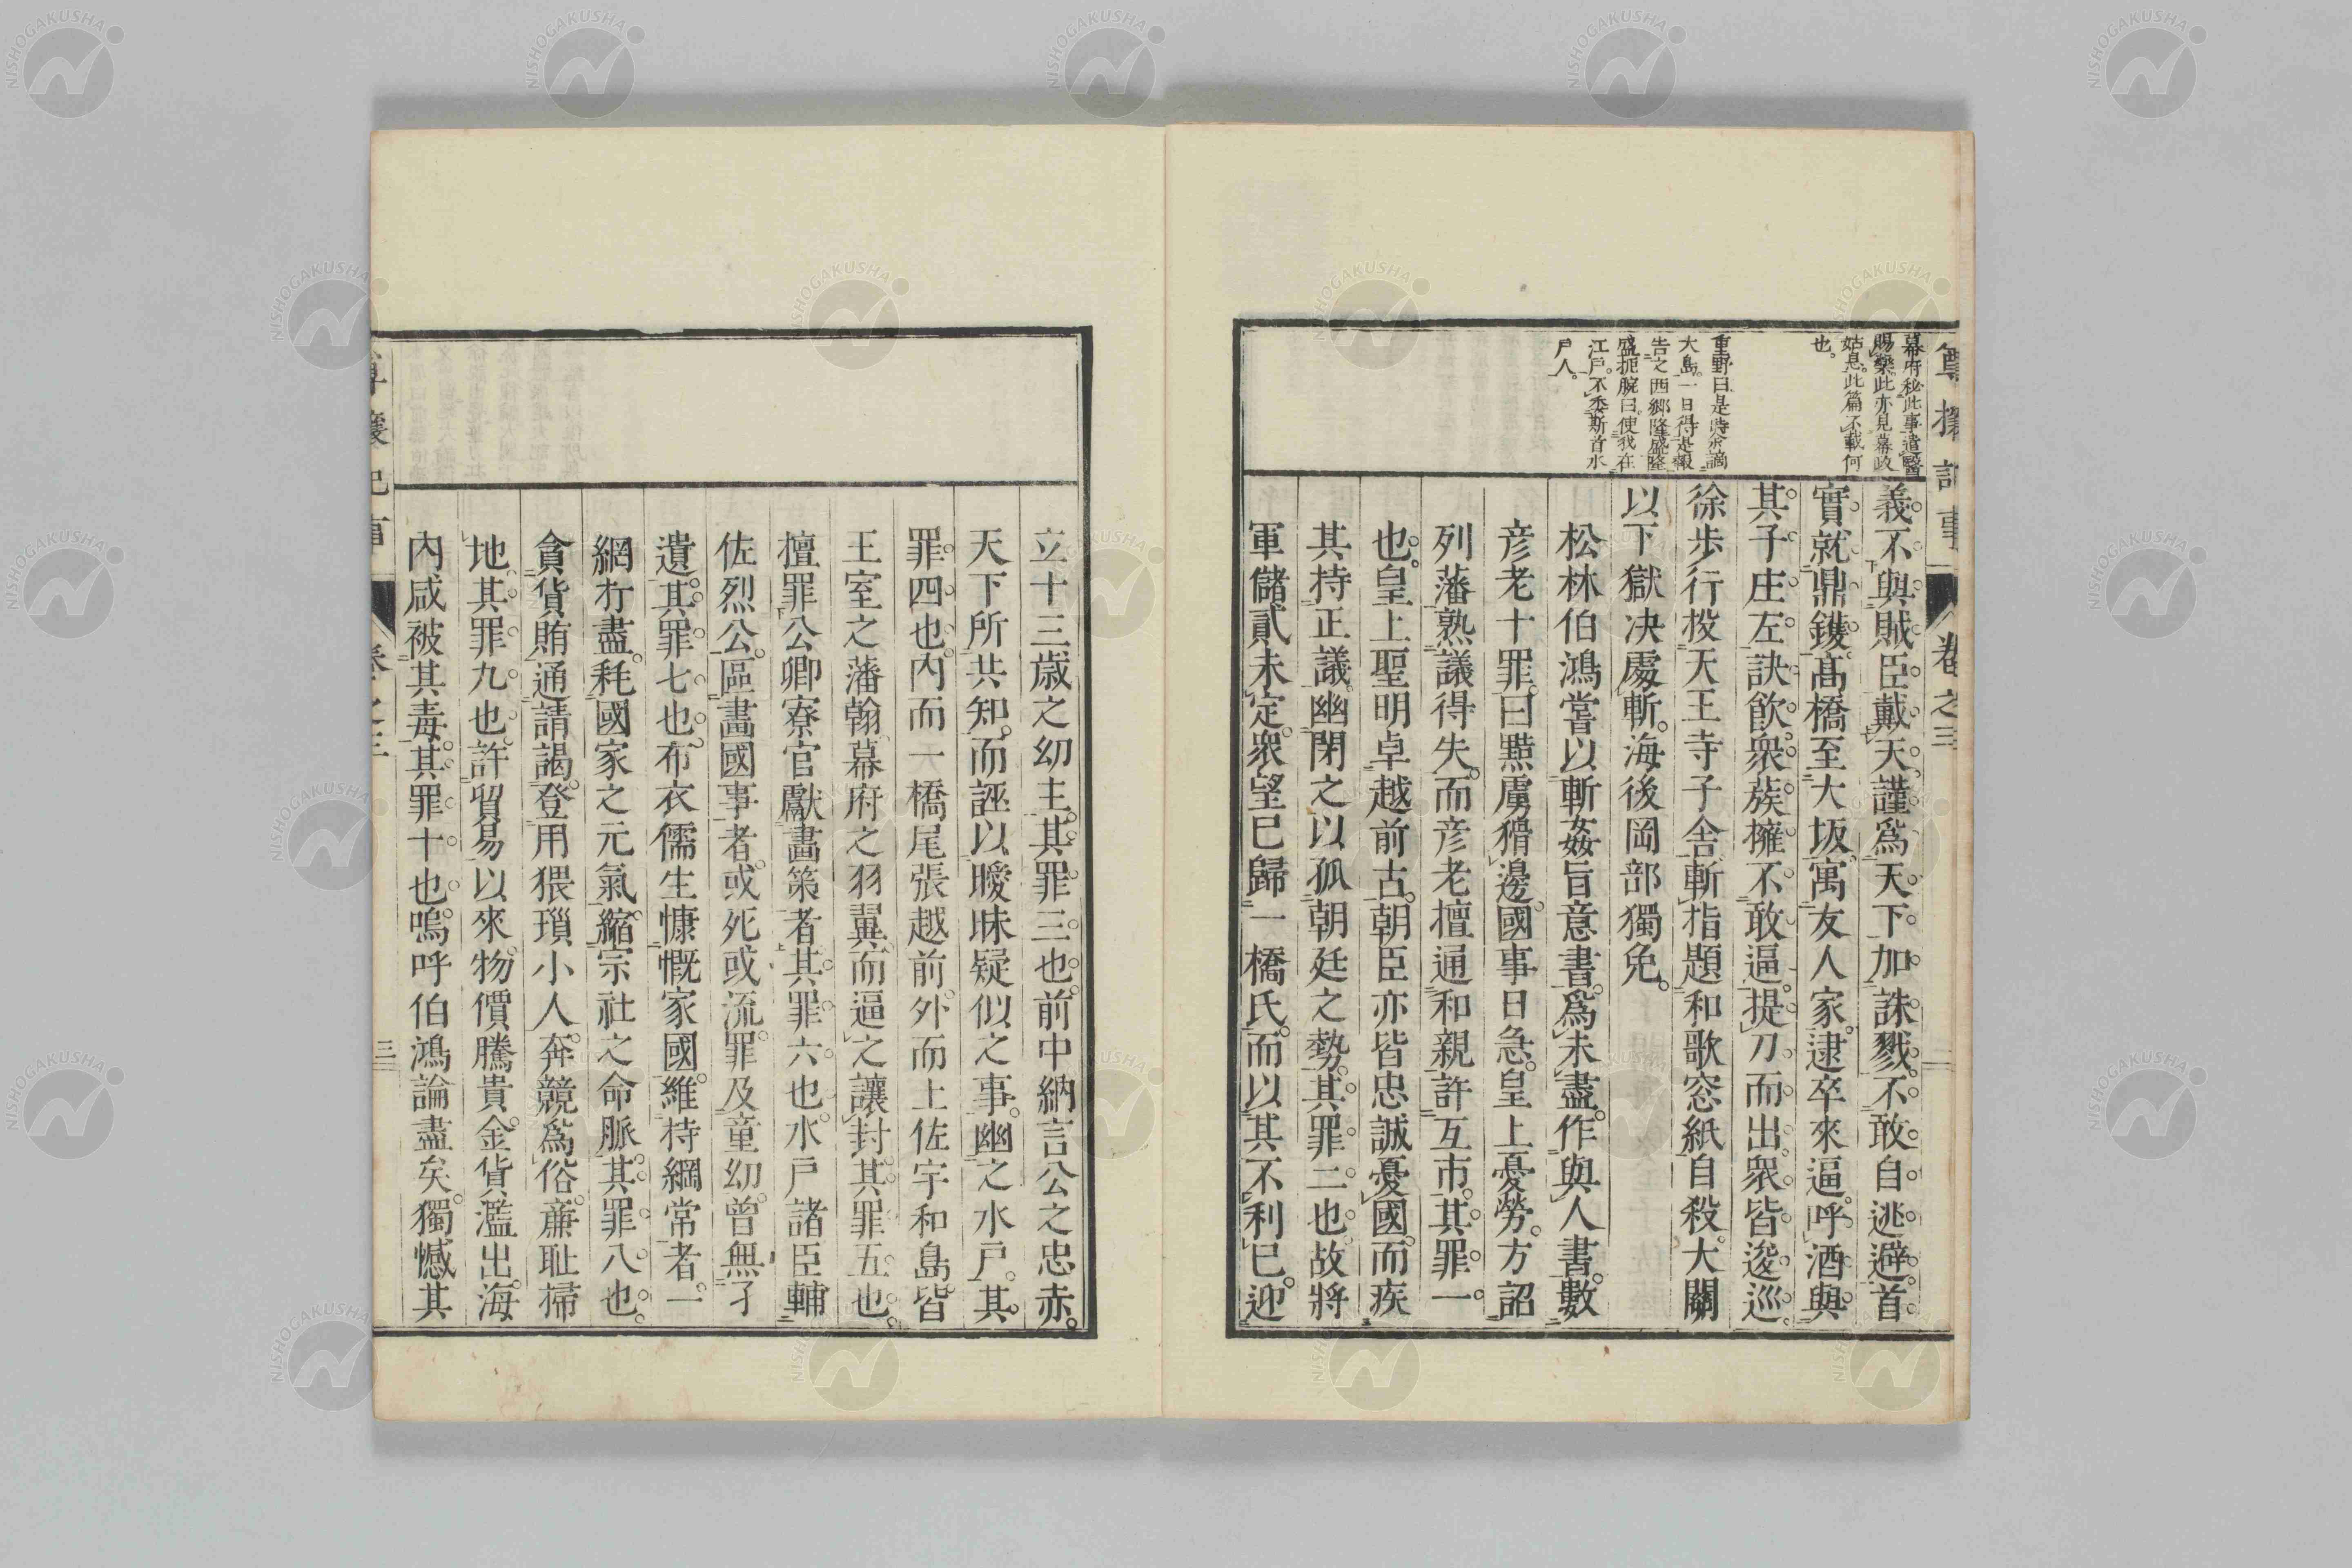 尊攘記事
卷之三
二
幕府秘此事遣醫
賜藥此亦見幕政
姑息此篇不載何
也。
重野曰是時余謫
大島。一日得是報
告之西鄉隆盛隆
盛扼腕曰使我在
江戶。不委斯首水
戶人。
義。不與賊臣。戴天。謹爲天下。加誅戮。不敢自逃避。首
實。就鼎鑊。高橋至大坂。寓友人家。逮卒來逼。呼酒與
其子庄左訣飮。衆蔟擁。不敢逼。提刀而出。衆皆逡巡。
徐步行投天王寺子舍。斬指題和歌窓紙自殺。大關
以下獄決處斬。海後岡部獨免。
松林伯鴻嘗以斬姦旨意書。爲未盡。作與人書。數
彥老十罪。曰黠虜猾邊。國事日急。皇上憂勞。方詔
列藩熟議得失。而彥老擅通和親許互市。其罪一
也。皇上聖明卓越前古。朝臣亦皆忠誠憂國。而疾
其持正議。幽閉之以孤朝廷之勢。其罪二也。故將
軍儲貳未定。衆望已歸一橋氏。而以其不利已。迎
立十三歲之幼主。其罪三也。前中納言公之忠赤。
天下所共知。而誣以曖昧疑似之事。幽之水戶。其
罪四也。內而一橋尾張越前。外而上佐宇和島。皆
王室之藩翰。幕府之羽翼。而逼之讓封。其罪五也。
擅罪公卿寮官獻畫策者。其罪六也。水戶諸臣輔
佐烈公。區畫國事者。或死或流。罪及童幼。曾無孑
遺。其罪七也。布衣儒生慷慨家國。維持綱常者。一
網打盡。耗國家之元氣。縮宗社之命脈。其罪八也。
貪貨賄通請謁。登用猥瑣小人。奔競爲俗。廉恥掃
地。其罪九也。許貿易以來。物價騰貴。金貨濫出。海
內咸被其毒。其罪十也。嗚呼伯鴻論盡矣。獨憾其
尊攘記事
卷之三
三